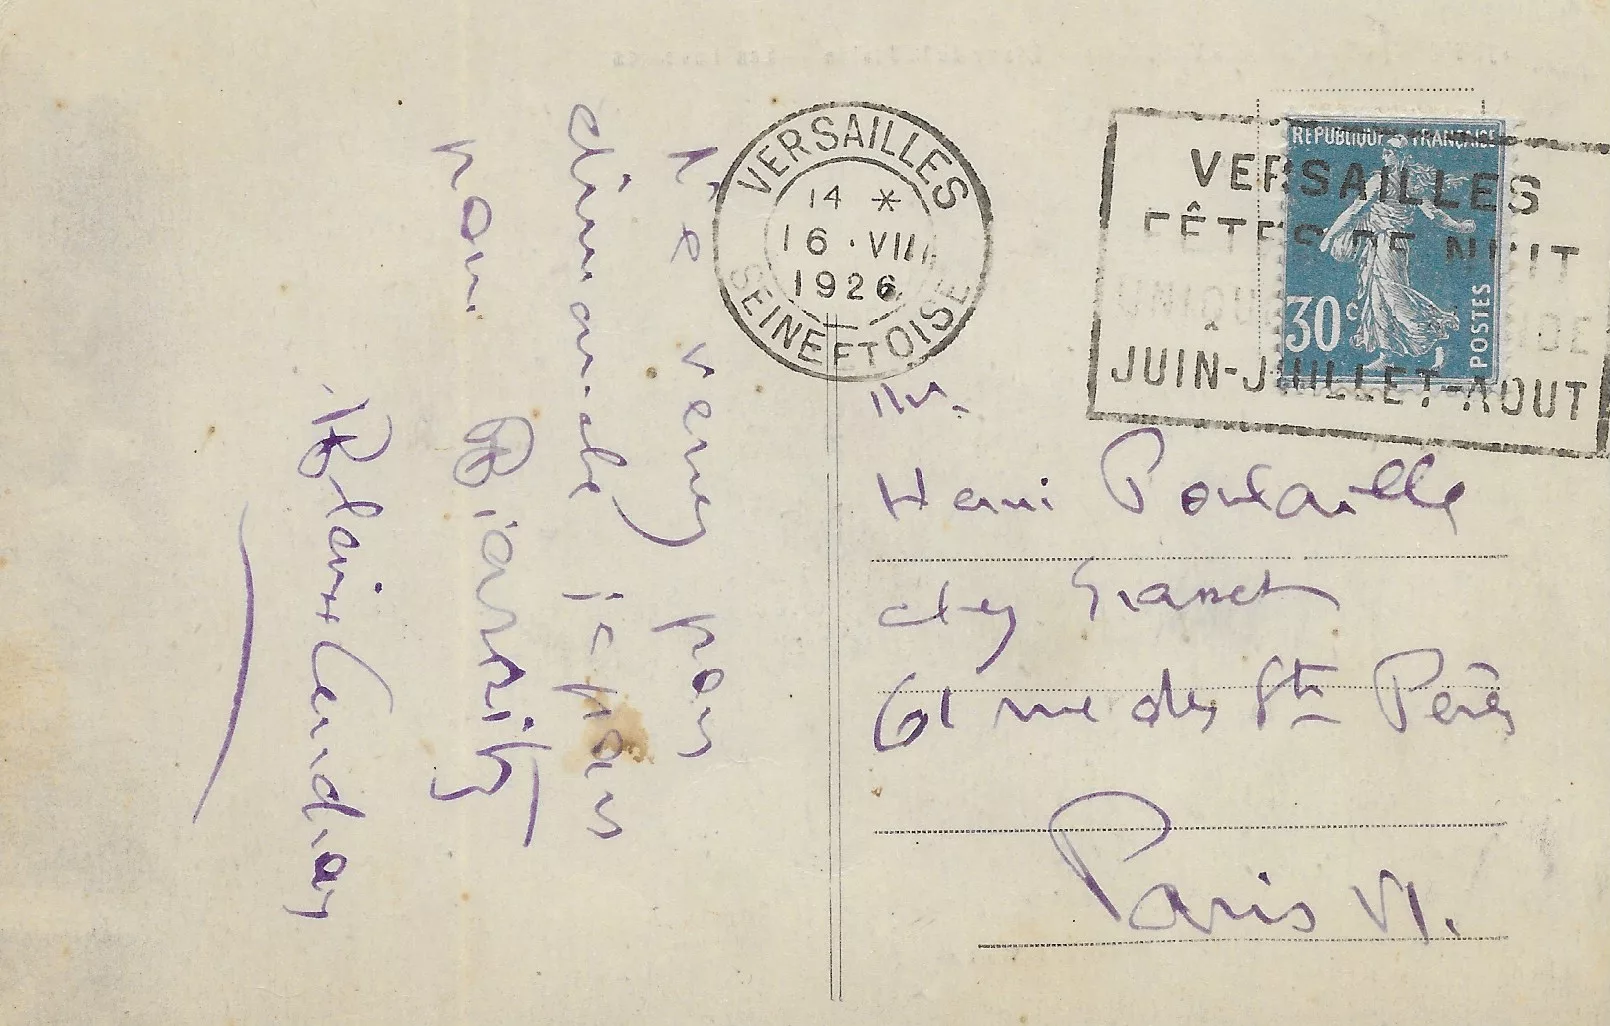 Ne venez pas
dimanche je pars
pour Biarritz
Blaise Cendrars
VERSAILLES
14 *
16 · VIII
1926
SEINE ET OISE
VERSAILLES
FÊTES DE NUIT
JUIN-JUILLET-AOUT
REPUBLIQUE FRANÇAISE
30c
POSTES
Mr.
Henri Poulaille
chez Grasset
61 rue des Sts Pères
Paris VI.